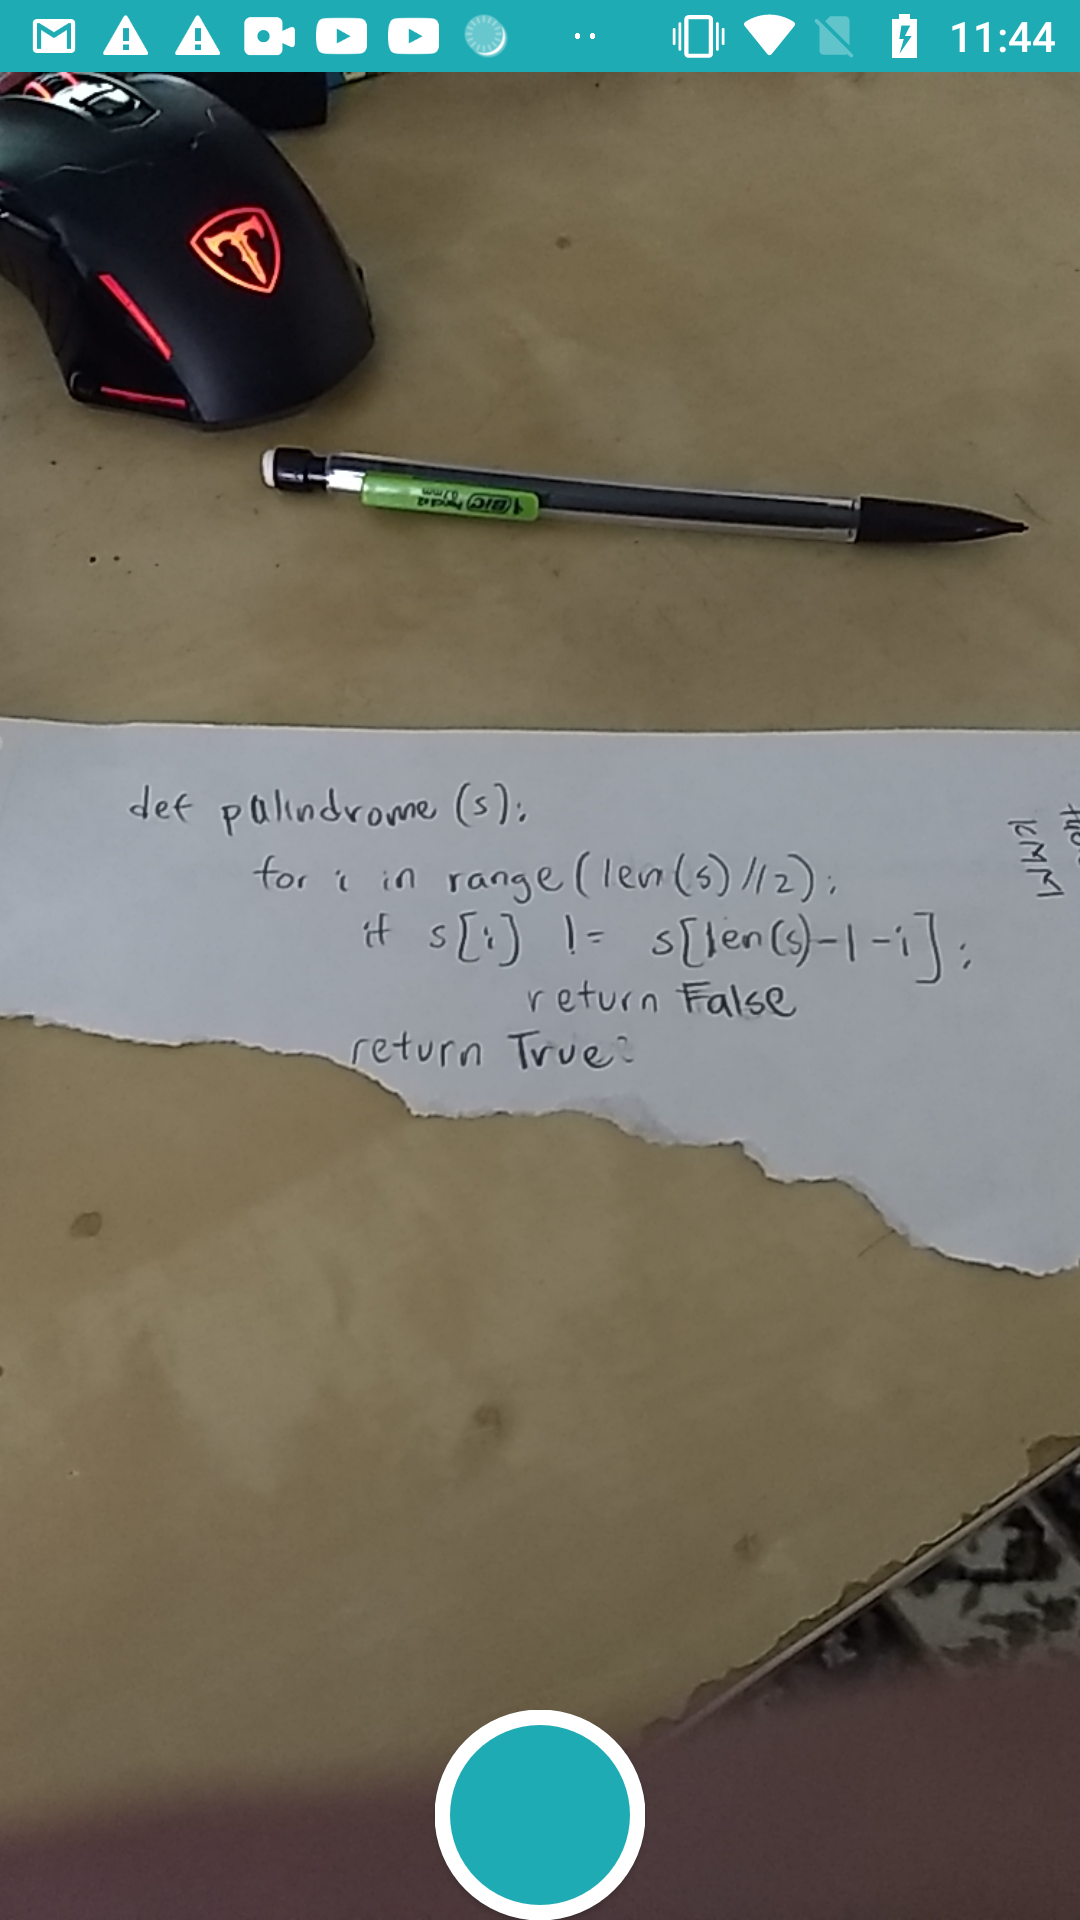 11:44
BIC
0.7mm
def palindrome (s):
for i in range (len(s)//2):
if s[i] != s[len(s)-1-i]:
return False
return True